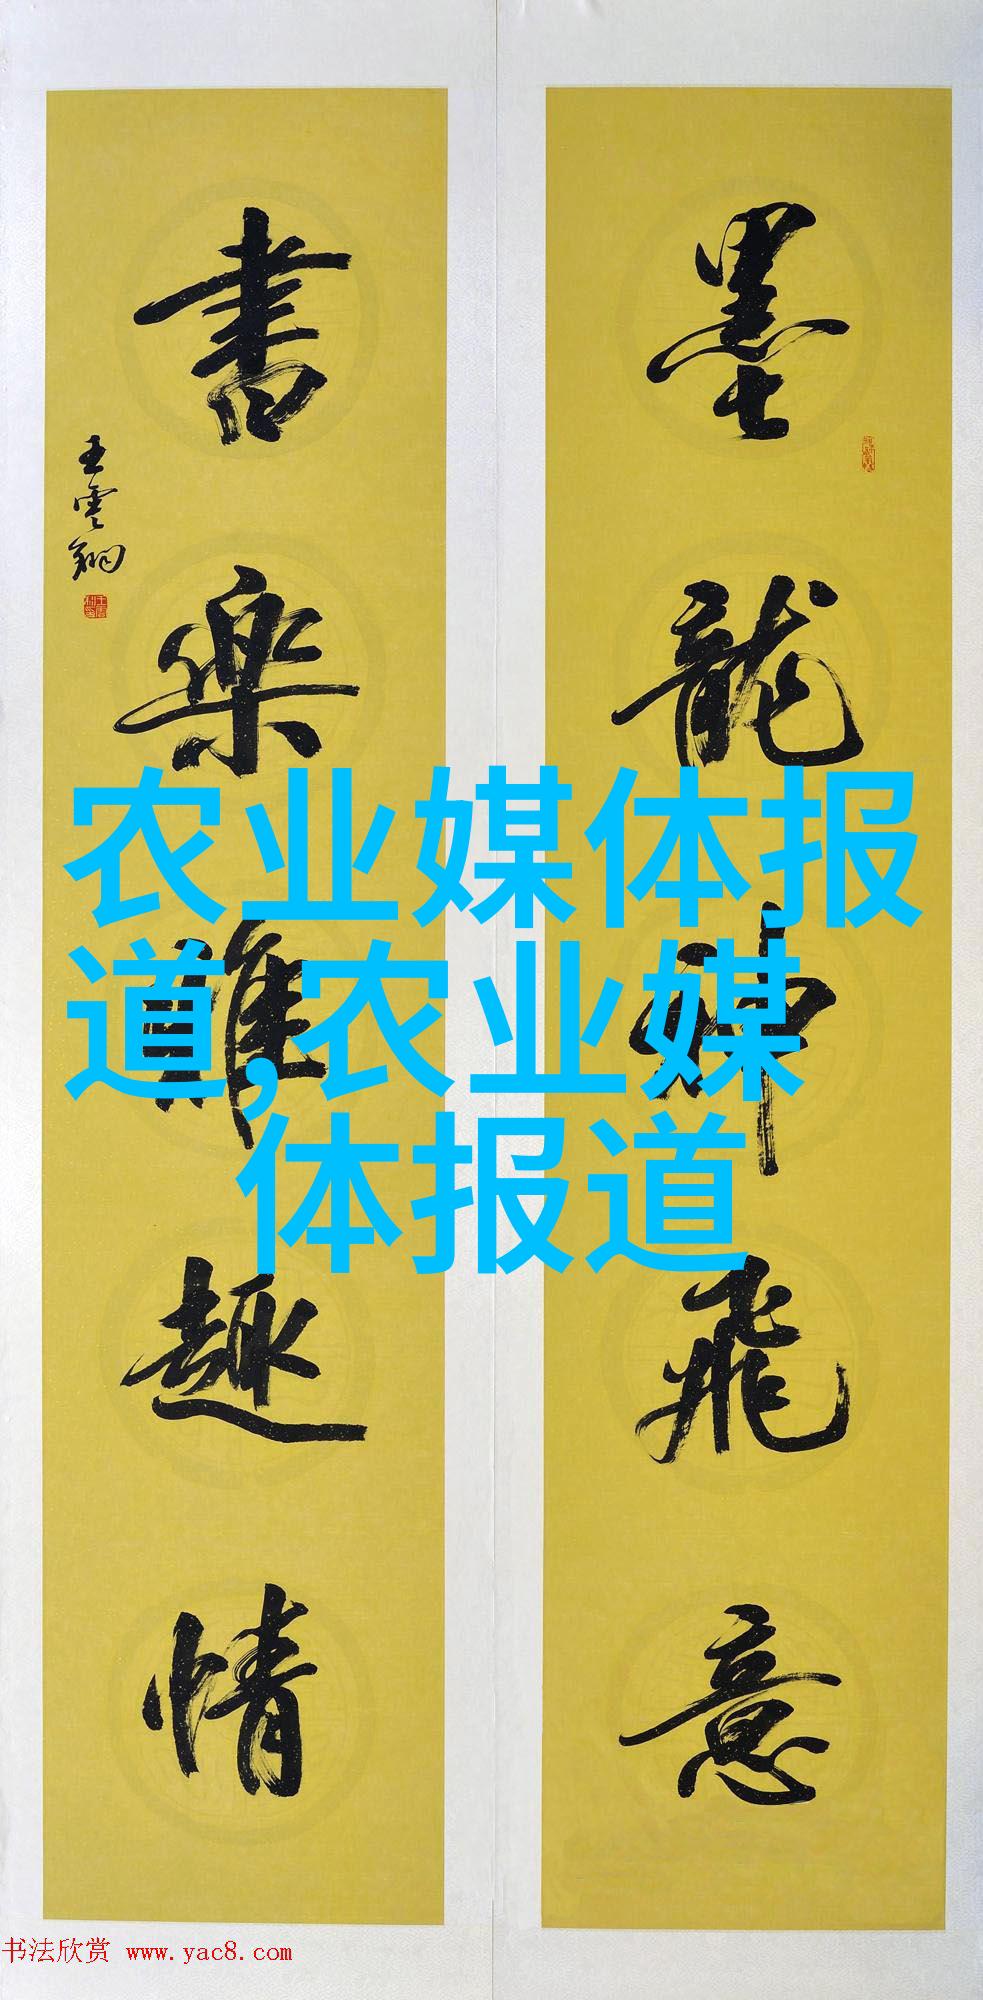 墨龍神飛意
書樂雅趣情
王雲翔
农业媒体报
道,农业媒
体报道
书法欣赏 www.yac8.com